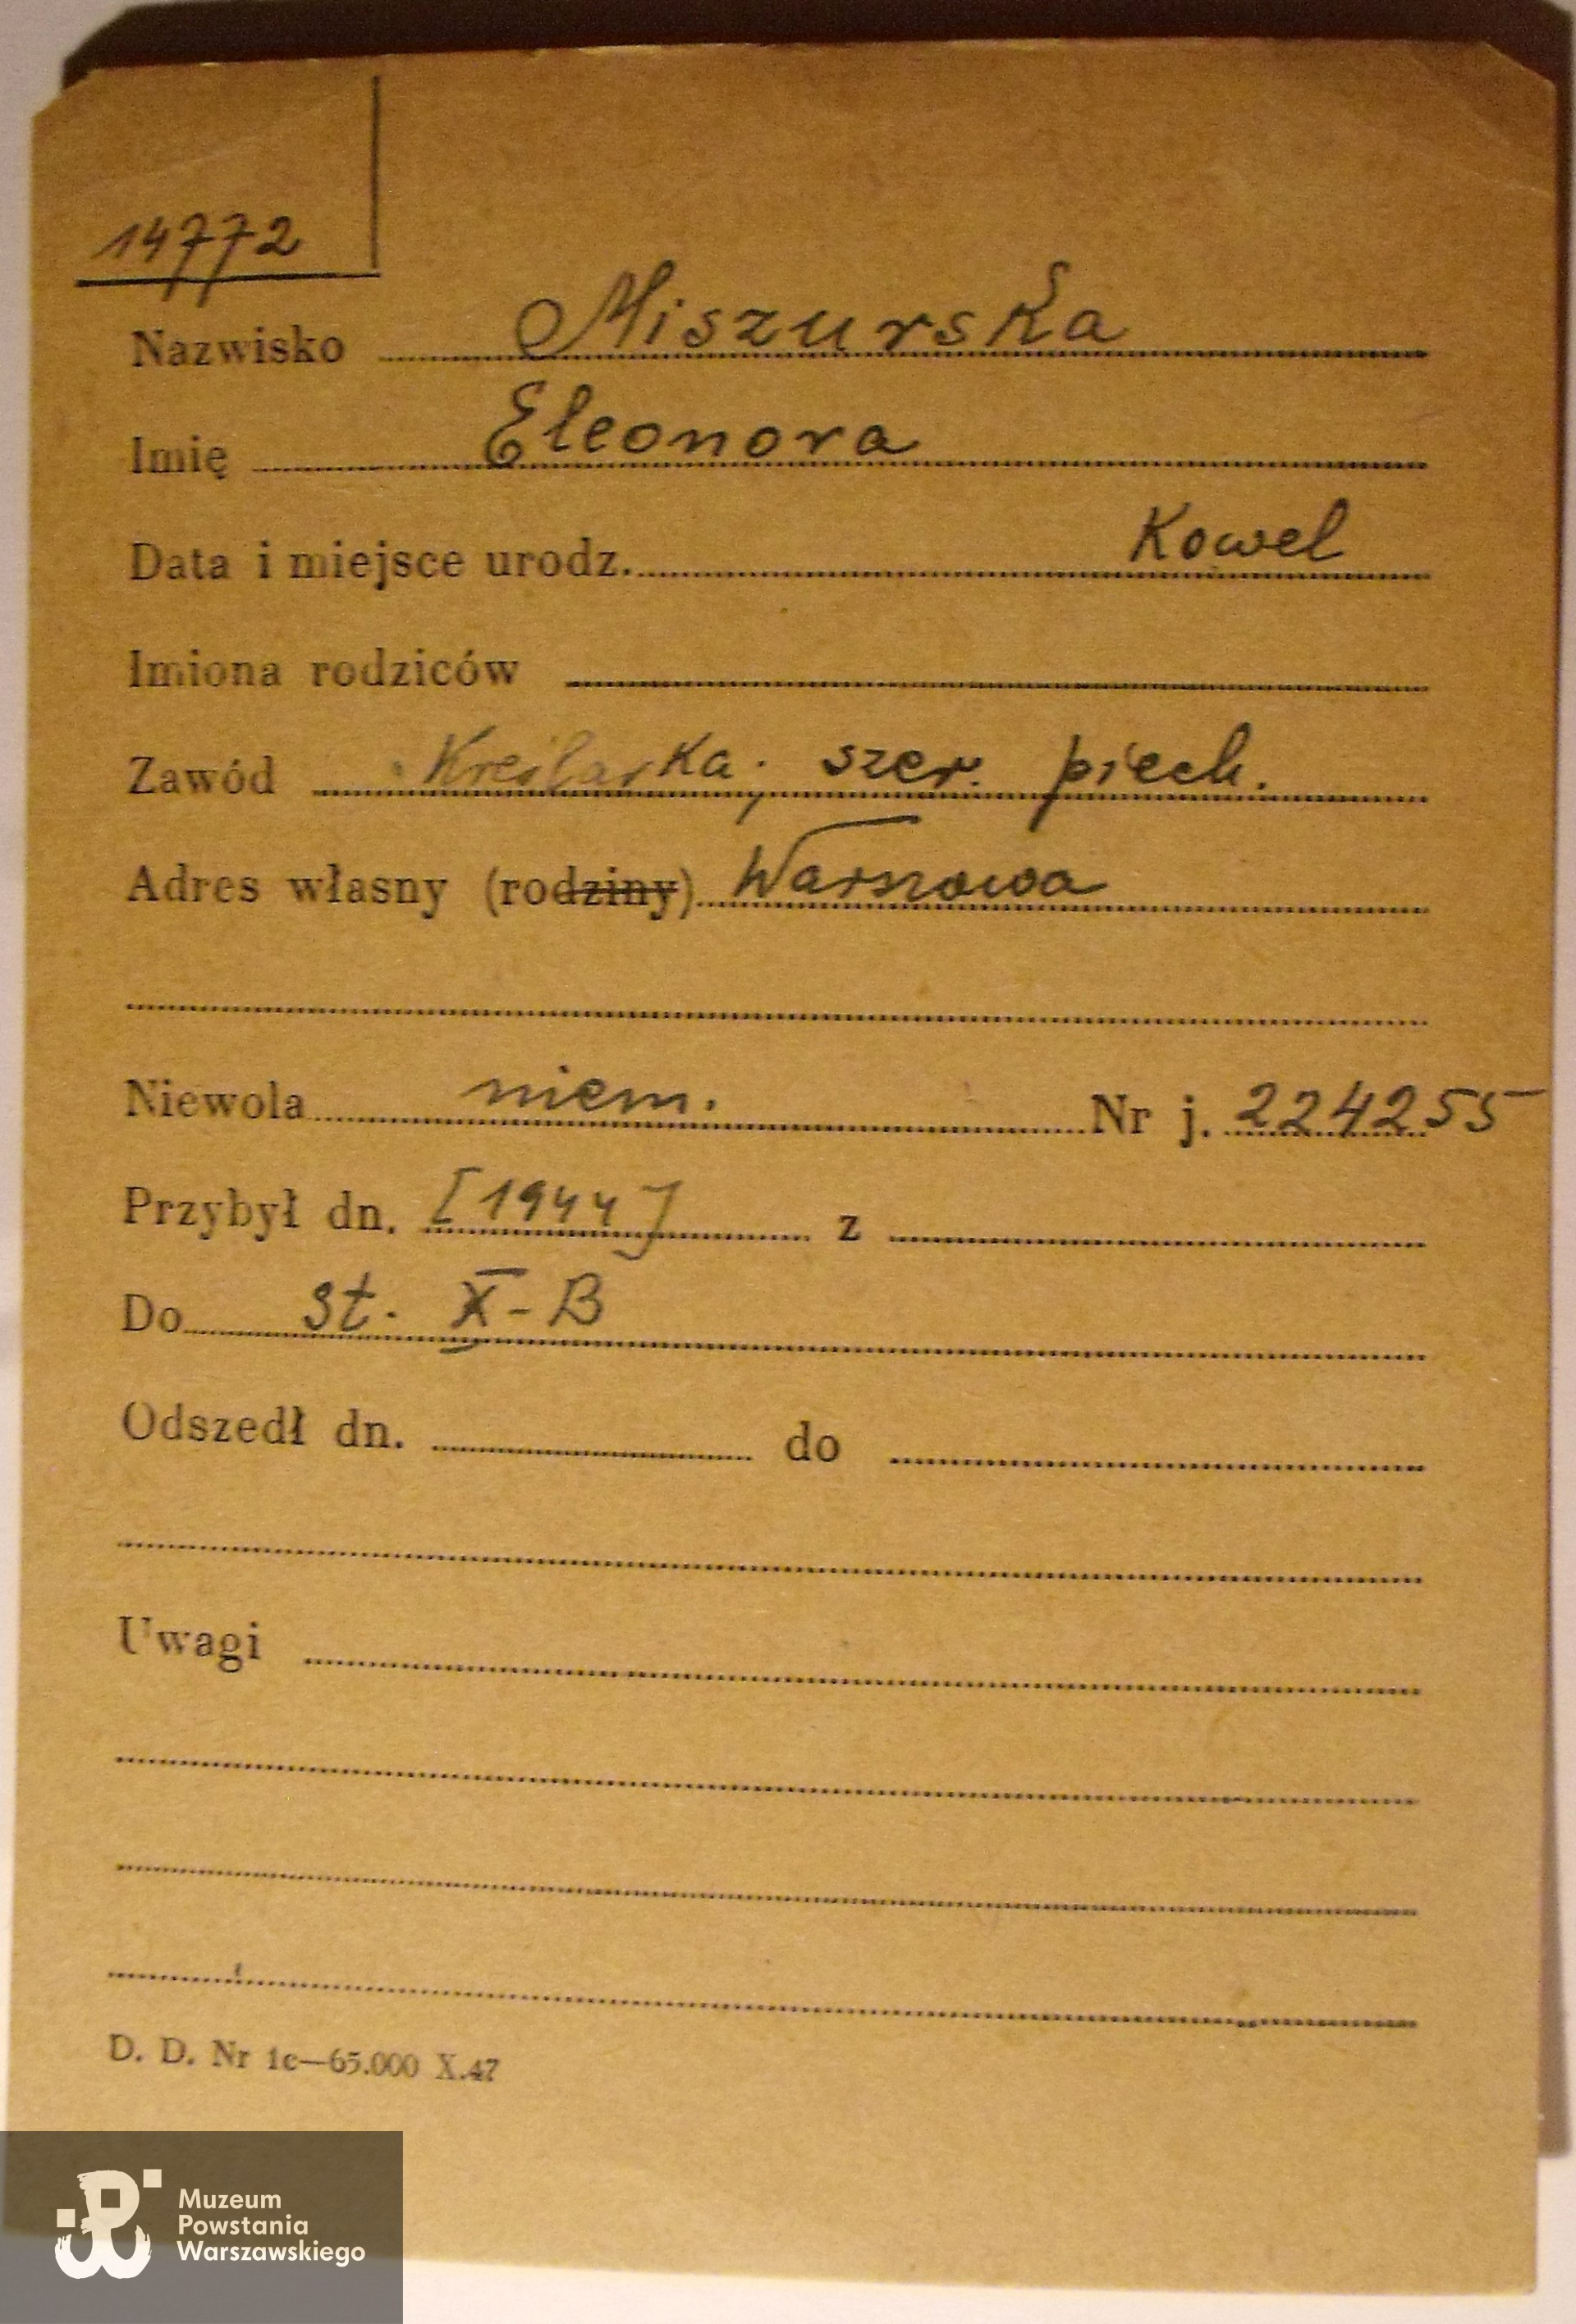 14772
Nazwisko Miszurska
Imię Eleonora
Data i miejsce urodz. Kowel
Imiona rodziców
Zawód Kreślarka, szer. piech.
Adres własny (rodziny) Warszawa
Niewola niem. Nr j. 224255
Przybył dn. [1944] z
Do St. X-B
Odszedł dn. do
Uwagi
D. D. Nr 1c—65.000 X.47
Muzeum
Powstania
Warszawskiego